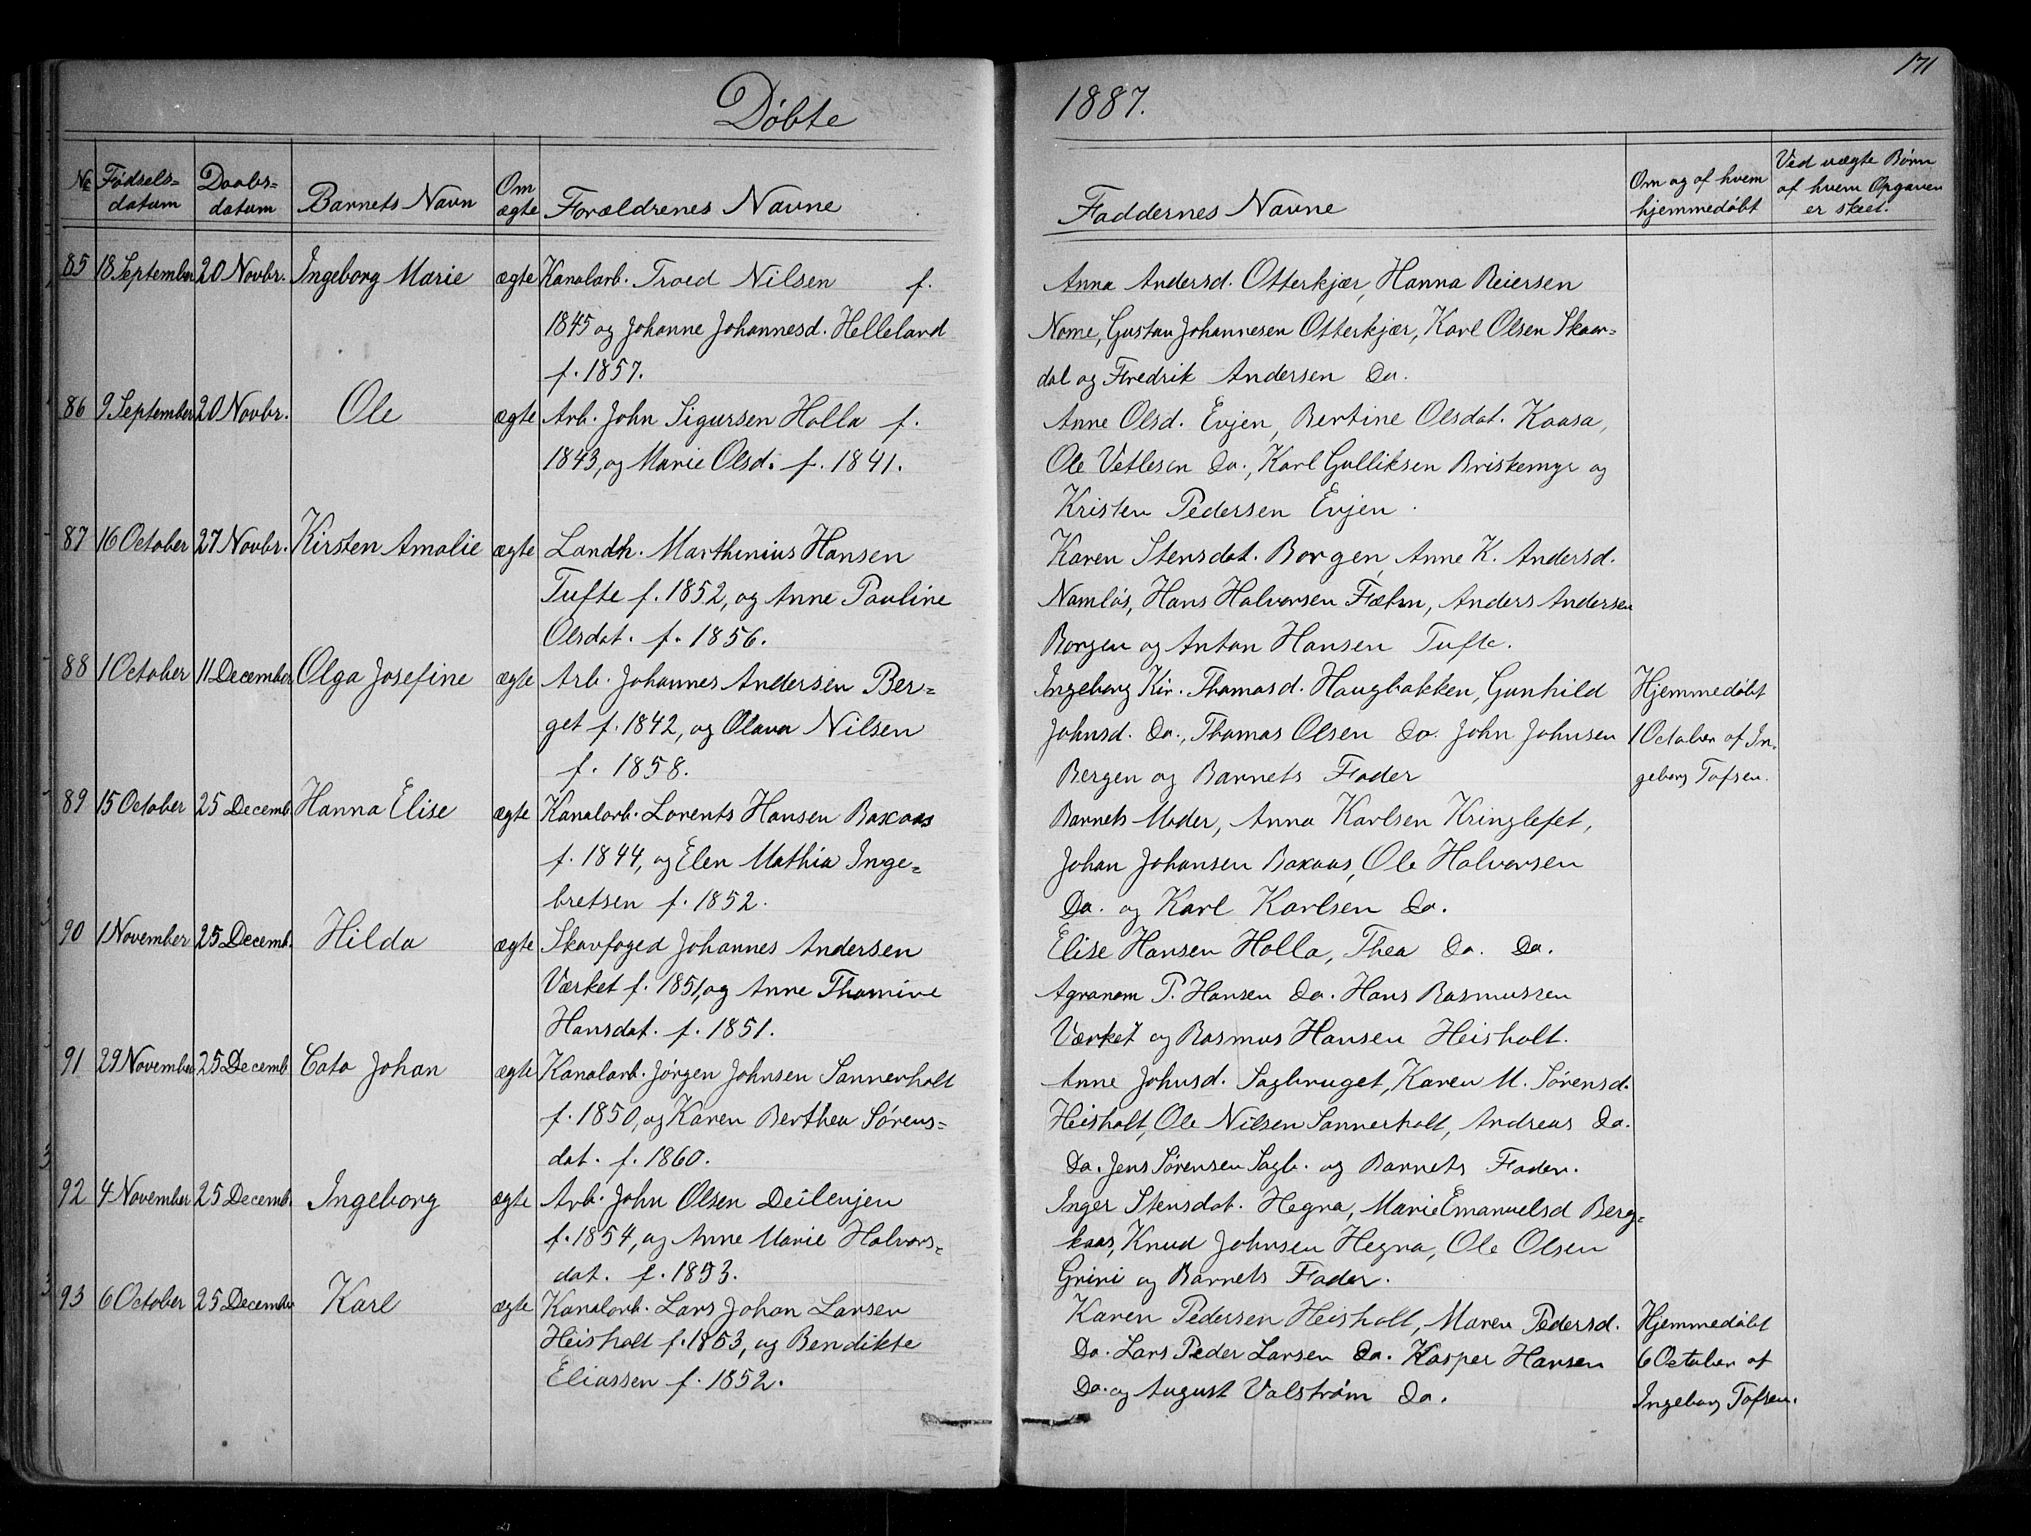 171
Døbte 1887.
No Fødsels= datum Daabs= datum Barnets Navn Om ægte Forældrenes Navne Faddernes Navne Om og af hvem hjemmedøbt Ved uægte Børn af hvem Opgaven er skeet.
85 18 September 20 Novbr. Ingeborg Marie ægte Kanalarb. Troed Nilsen f. Anna Andersd. Otterkjær, Hanna Reiersen
1845 og Johanne Johannesd. Helleland Nome, Gustav Johannesen Otterkjær, Karl Olsen Skaar=
f. 1857. dal og Fredrik Andersen Do.
86 9 September 20 Novbr. Ole ægte Arb. John Sigursen Holla f. Anne Olsd. Evjen, Bertine Olsdat. Kaasa,
1843, og Marie Olsd. f. 1841. Ole Vetlesen Do., Karl Gulliksen Briskemyr og
Kristen Pedersen Evjen.
87 16 October 27 Novbr. Kirsten Amalie ægte Landh. Marthinius Hansen Karen Stensdat. Borgen, Anne K. Andersd.
Tufte f. 1852, og Anne Pauline Namløs, Hans Halvorsen Fæhn, Anders Andersen
Olsdat. f. 1856. Borgen og Anton Hansen Tufte.
88 1 October 11 December Olga Josefine ægte Arb. Johannes Andersen Ber= Ingeborg Kir. Thomasd. Haugbakken, Gunhild Hjemmedøbt
get f. 1842, og Olava Nilsen Johnsd. Do., Thomas Olsen Do. John Johnsen 1 October af In=
f. 1858. Bergen og Barnets Fader geborg Tofsen.
89 15 October 25 Decemb. Hanna Elise ægte Kanalarb. Lorents Hansen Baxaas Barnets Moder, Anna Karlsen Kringlefet,
f. 1844, og Elen Mathia Inge= Johan Johansen Baxaas, Ole Halvorsen
bretsen f. 1852. Do. og Karl Karlsen Do.
90 1 November 25 Decemb. Hilda ægte Skovfoged Johannes Andersen Elise Hansen Holla, Thea Do. Do.
Værket f. 1851, og Anne Thomine Agronom P. Hansen Do. Hans Rasmussen
Hansdat. f. 1851. Værket og Rasmus Hansen Heisholt.
91 29 November 25 Decemb. Cato Johan ægte Kanalarb. Jørgen Johnsen Sannerholt Anne Johnsd. Sagbruget, Karen M. Sørensd.
f. 1850, og Karen Berthea Sørens= Heisholt, Ole Nilsen Sannerholt, Andreas Do.
dat. f. 1860. Do. Jens Sørensen Sagb. og Barnets Fader.
92 4 November 25 Decemb. Ingeborg ægte Arb. John Olsen Deilenjen Inger Stensdat. Hegna, Marie Emanuelsd Berg=
f. 1854, og Anne Marie Halvors= kaas, Knud Johnsen Hegna, Ole Olsen
dat. f. 1853. Grini og Barnets Fader.
93 6 October 25 December Karl ægte Kanalarb. Lars Johan Larsen Karen Pedersen Heisholt, Maren Pedersd. Hjemmedøbt
Heisholt f. 1853, og Bendikte Do. Lars Peder Larsen Do. Kasper Hansen 6 October af
Eliassen f. 1852. Do. og August Valstrøm Do. Ingeborg Tofsen.